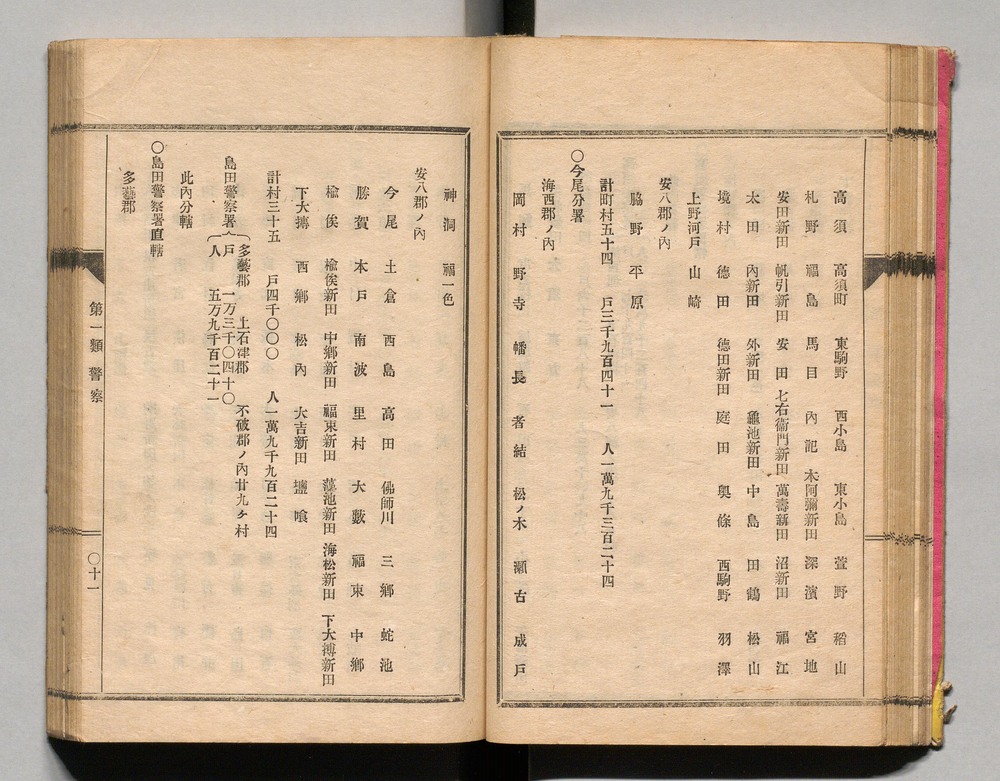 高須 高須町 東駒野 西小島 東小島 萱野 稻山
札野 福島 馬目 內記 木阿彌新田 深濱 宮地
安田新田 帆引新田 安田 七右衞門新田 萬壽新田 沼新田 福江
太田 內新田 外新田 龜池新田 中島 田鶴 松山
境村 德田 德田新田 庭田 奥條 西駒野 羽澤
上野河戸 山崎
安八郡ノ內
脇野 平原
計町村五十四 戸三千九百四十一 人一萬九千三百二十四
〇今尾分署
海西郡ノ內
岡村 野寺 幡長 者結 松ノ木 瀬古 成戸
神洞 福一色
安八郡ノ內
今尾 土倉 西島 高田 佛師川 三鄉 蛇池
勝賀 本戸 南波 里村 大藪 福束 中鄉
楡俣 楡俣新田 中鄉新田 福束新田 藻池新田 海松新田 下大榑新田
下大榑 西鄉 松內 大吉新田 鹽喰
計村三十五 戸四千〇〇〇 人一萬九千九百二十四
島田警察署 多藝郡 上石津郡 不破郡ノ內廿九ケ村
戸 一万三千〇四十〇
人 五万九千百二十一
此內分轄
〇島田警察署直轄
多藝郡
第一類 警察
〇十一